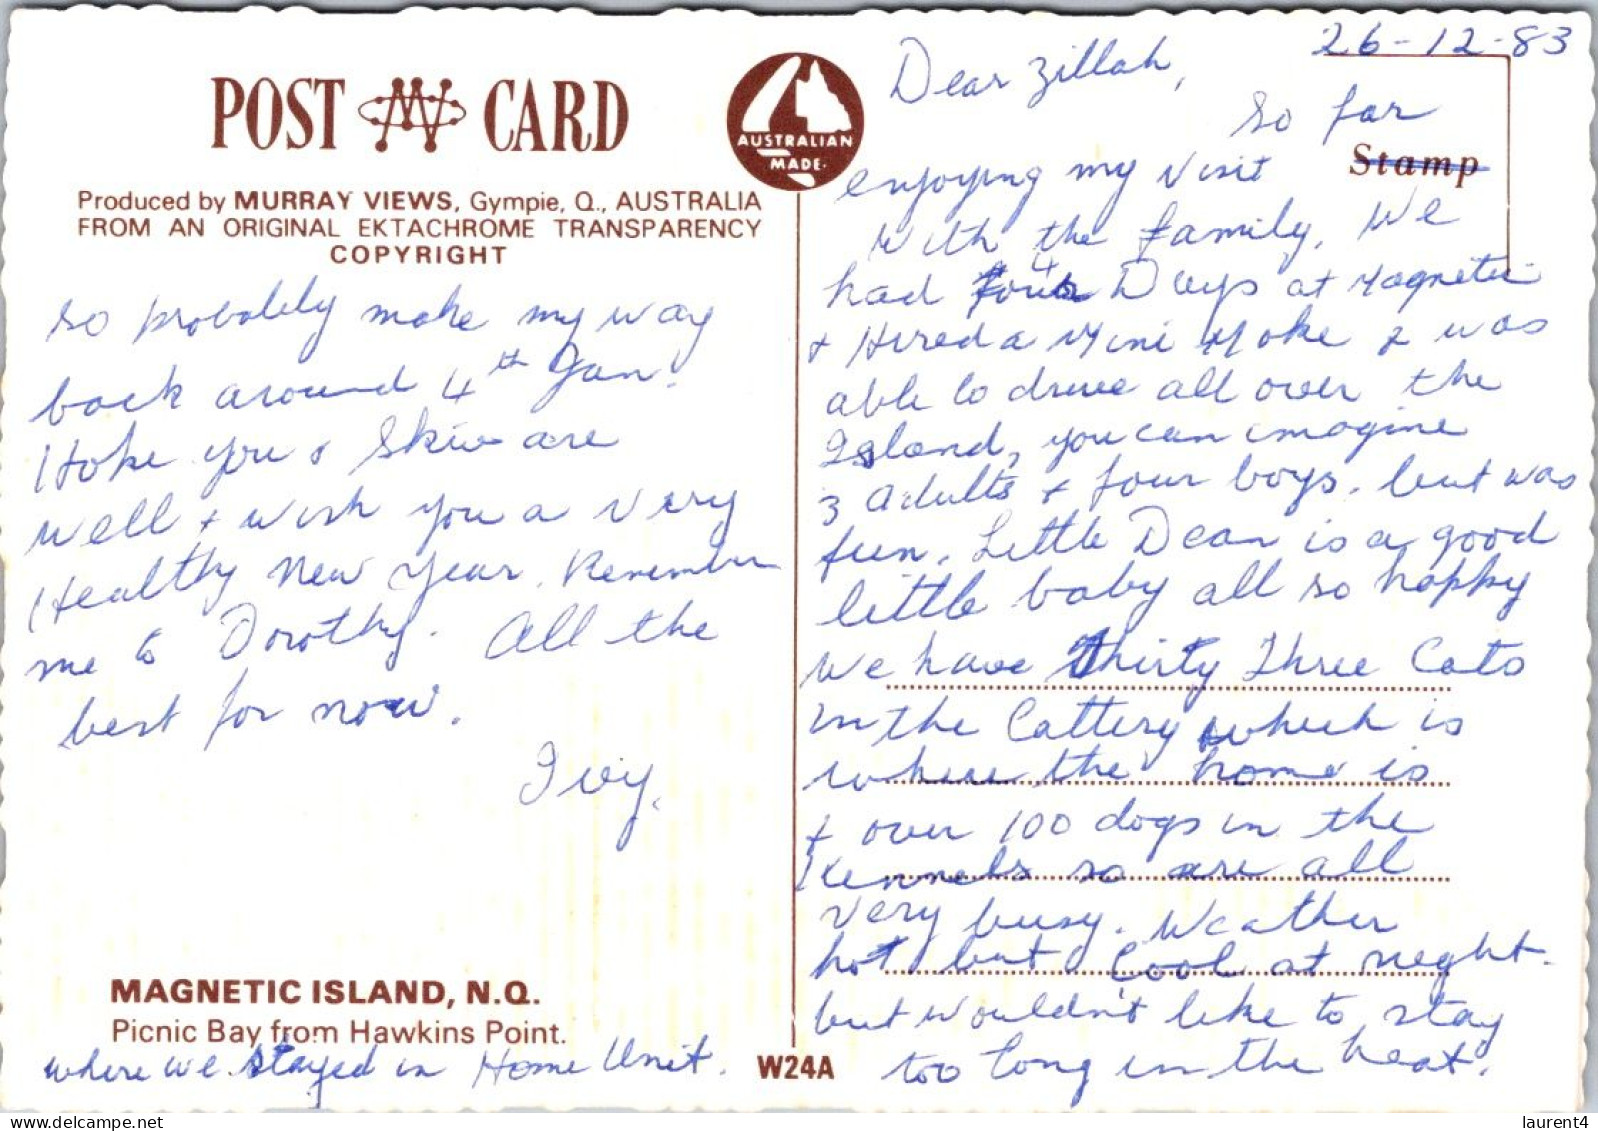 26-12-83
Dear Zillah,
So far
enjoying my visit
with the family. We
had 4 Days at Magnetic
+ Hired a Mini Moke & was
able to drive all over the
Island, you can imagine
3 adults + four boys. but was
fun. Little Dean is a good
little baby all so happy
we have Thirty Three Cats
in the Cattery which is
where the home is
+ over 100 dogs in the
Kennels so are all
very busy. Weather
hot but Cool at night.
but wouldn't like to stay
too long in the heat.
so probably make my way
back around 4th Jan.
Hope you &
are
well + wish you a very
Healthy New Year. Remember
me to Dorothy. All the
best for now.
Ivy.
POST CARD
AUSTRALIAN
MADE.
Stamp
Produced by MURRAY VIEWS, Gympie, Q., AUSTRALIA
FROM AN ORIGINAL EKTACHROME TRANSPARENCY
COPYRIGHT
MAGNETIC ISLAND, N.Q.
Picnic Bay from Hawkins Point.
where we stayed in Home Unit.
W24A
delcampe.net
laurent4